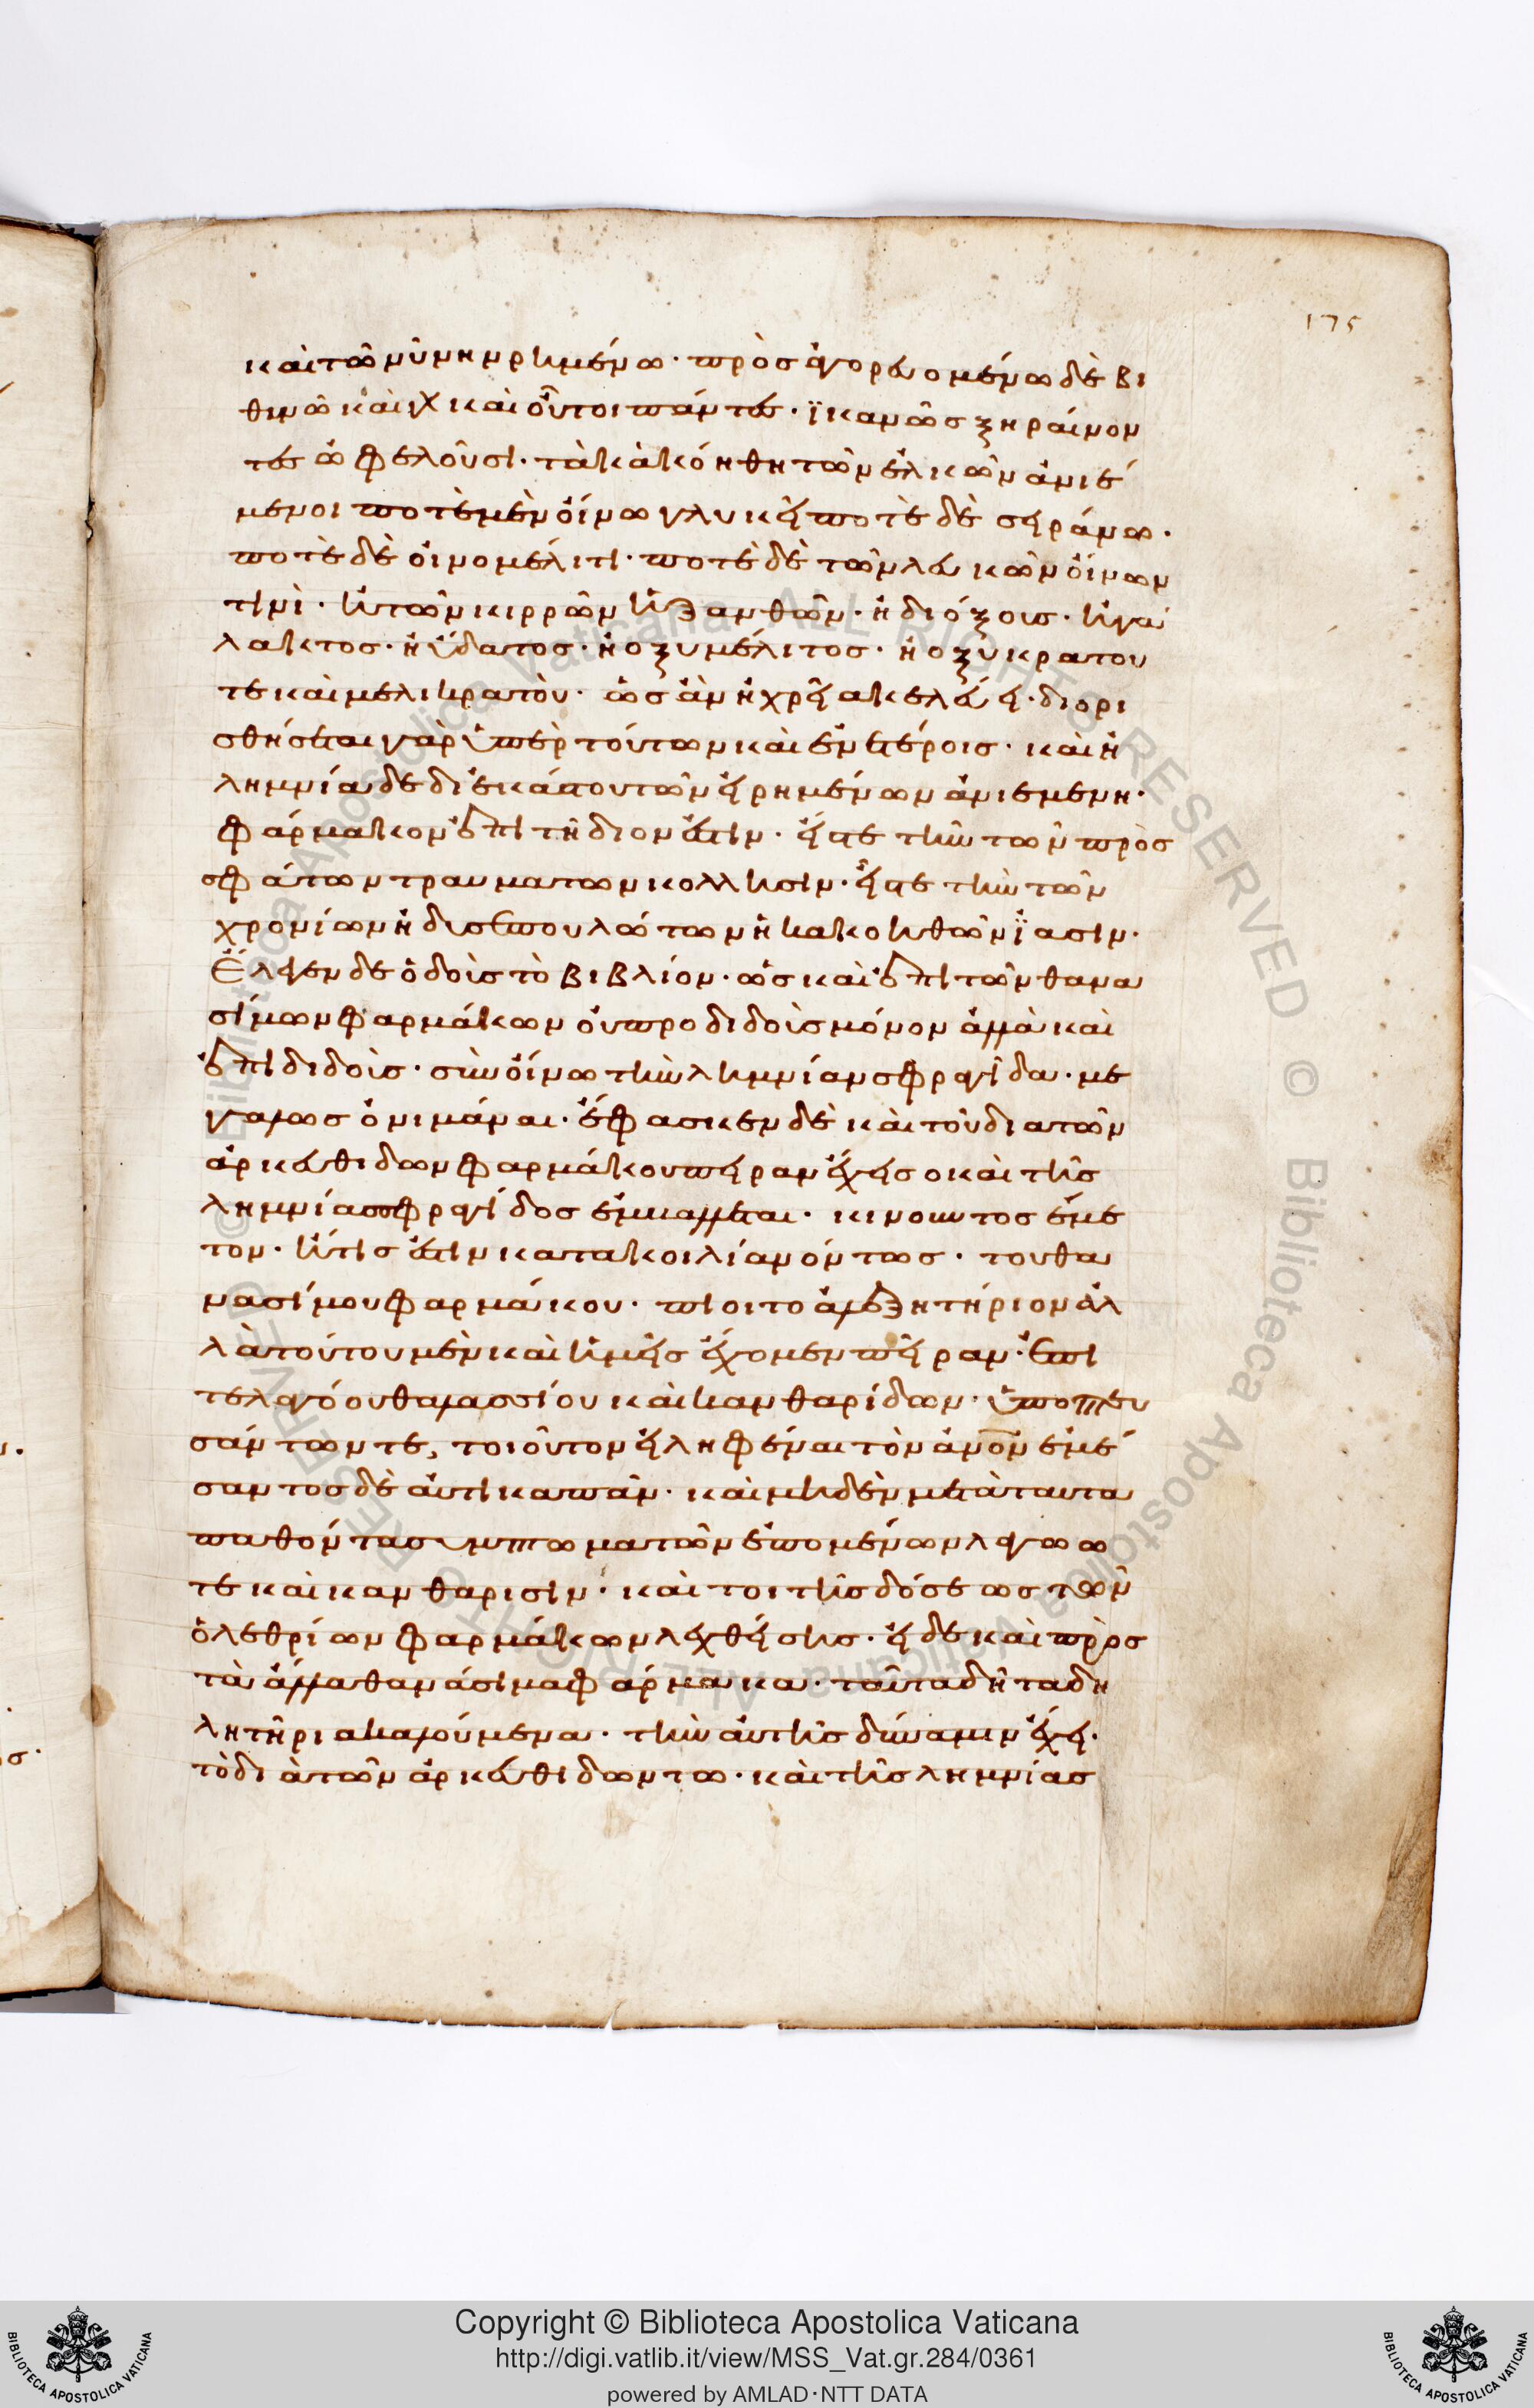 175
καὶ τῶ νῦν ἠνρημένω· πρὸσ ἀγορευομένω δὲ βι
θυνῶ καὶ γὰρ καὶ οὗτοι πάντες· ϊκανῶσ ξηραίνον
τες ὠφελοῦσι· τὰ κακόηθη τῶν ἑλκῶν ἀνιέ
μενοι ποτὲ μὲν οἴνω γλυκεῖ ποτὲ δὲ σιραίνω·
ποτὲ δὲ οἰνομέλιτι· ποτὲ δὲ τῶν λευκῶν οἴνων
τινὶ· ἢ τῶν κιρρῶν ἢ ξανθῶν· ἢ δι όξουσ· ἢ γά
λακτοσ· ἢ ὕδατοσ· ἢ οξυμέλιτοσ· ἢ οξυκρατου
τε καὶ μελικρατου· ὡσ ἂν ἡ χρεία κελεύει· διορι
σθήσεται γὰρ ὑπὲρ τούτων καὶ ἐν ἑτέροισ· καὶ ἡ
λημνία δε δι ἑκάστου τῶν εἰρημένων ἀνιεμενη·
φάρμακον ἐπιτήδιον ἐστιν· εἴς τε τὴν τῶν προσ
σφάτων τραυματων κόλλησιν· εἴς τε τὴν τῶν
χρονίων ἢ δυσεπουλώτων ἢ κακοηθῶν ΐασιν·
Ἔλεγεν δε ὁ δοὺσ τὸ βιβλίον· ὡσ καὶ ἐπὶ τῶν θανα
σίμων φαρμάκων οὐ προδιδοὺσ μόνον ἀλλὰ καὶ
ἐπιδιδοὺσ· σὺν οἴνω τὴν λημνίαν σφραγίδα· με
γάλωσ ὀνινάναι· ἔφασκεν δὲ καὶ τοῦ διὰ τῶν
ἀρκευθίδων φαρμάκου πεῖραν ἔχειν ὃ καὶ τῆσ
λημνίασ σφραγίδοσ ἐμβάλλεται· κινοῦντοσ ἔμε
τον· ἤν τισ ἔτι ἦν κατὰ κοιλίαν ὄντωσ· του θα
νασίμου φαρμάκου· πίοι τὸ ἀλεξητήριον ἀλ
λὰ τούτου μὲν καὶ ἡμεῖσ ἔχομεν πεῖραν· ἐπὶ
τε λαγωοῦ θαλασσίου καὶ κανθαρίδων· ὑποπτευ
σάντων τε, τοιοῦτον εἰληφέναι τὸν ἀνον ἐμέ
σαντοσ δὲ αὐτίκα πᾶν· καὶ μηδὲν μετὰ ταῦτα
παθόντασ συμπτωματῶν ἑπομένων λαγωῶ
τε καὶ κανθαρισιν· καὶ τοι τῆσ δόσεωσ τῶν
ὀλεθρίων φαρμάκων λεχθείσησ· εἰ δε καὶ πρὸσ
τὰ ἄλλα θανάσιμα φάρμακα· ταῦτα δὴ τὰ δη
λητήρια καλούμενα· τὴν αὐτὴν δύναμιν ἔχει·
τὸ διὰ τῶν ἀρκευθίδων τω· καὶ τῆσ λημνίασ
Copyright © Biblioteca Apostolica Vaticana
http://digi.vatlib.it/view/MSS_Vat.gr.284/0361
powered by AMLAD·NTT DATA
BIBLIOTECA APOSTOLICA VATICANA
BIBLIOTECA APOSTOLICA VATICANA
© Biblioteca Apostolica Vaticana ALL RIGHTS RESERVED